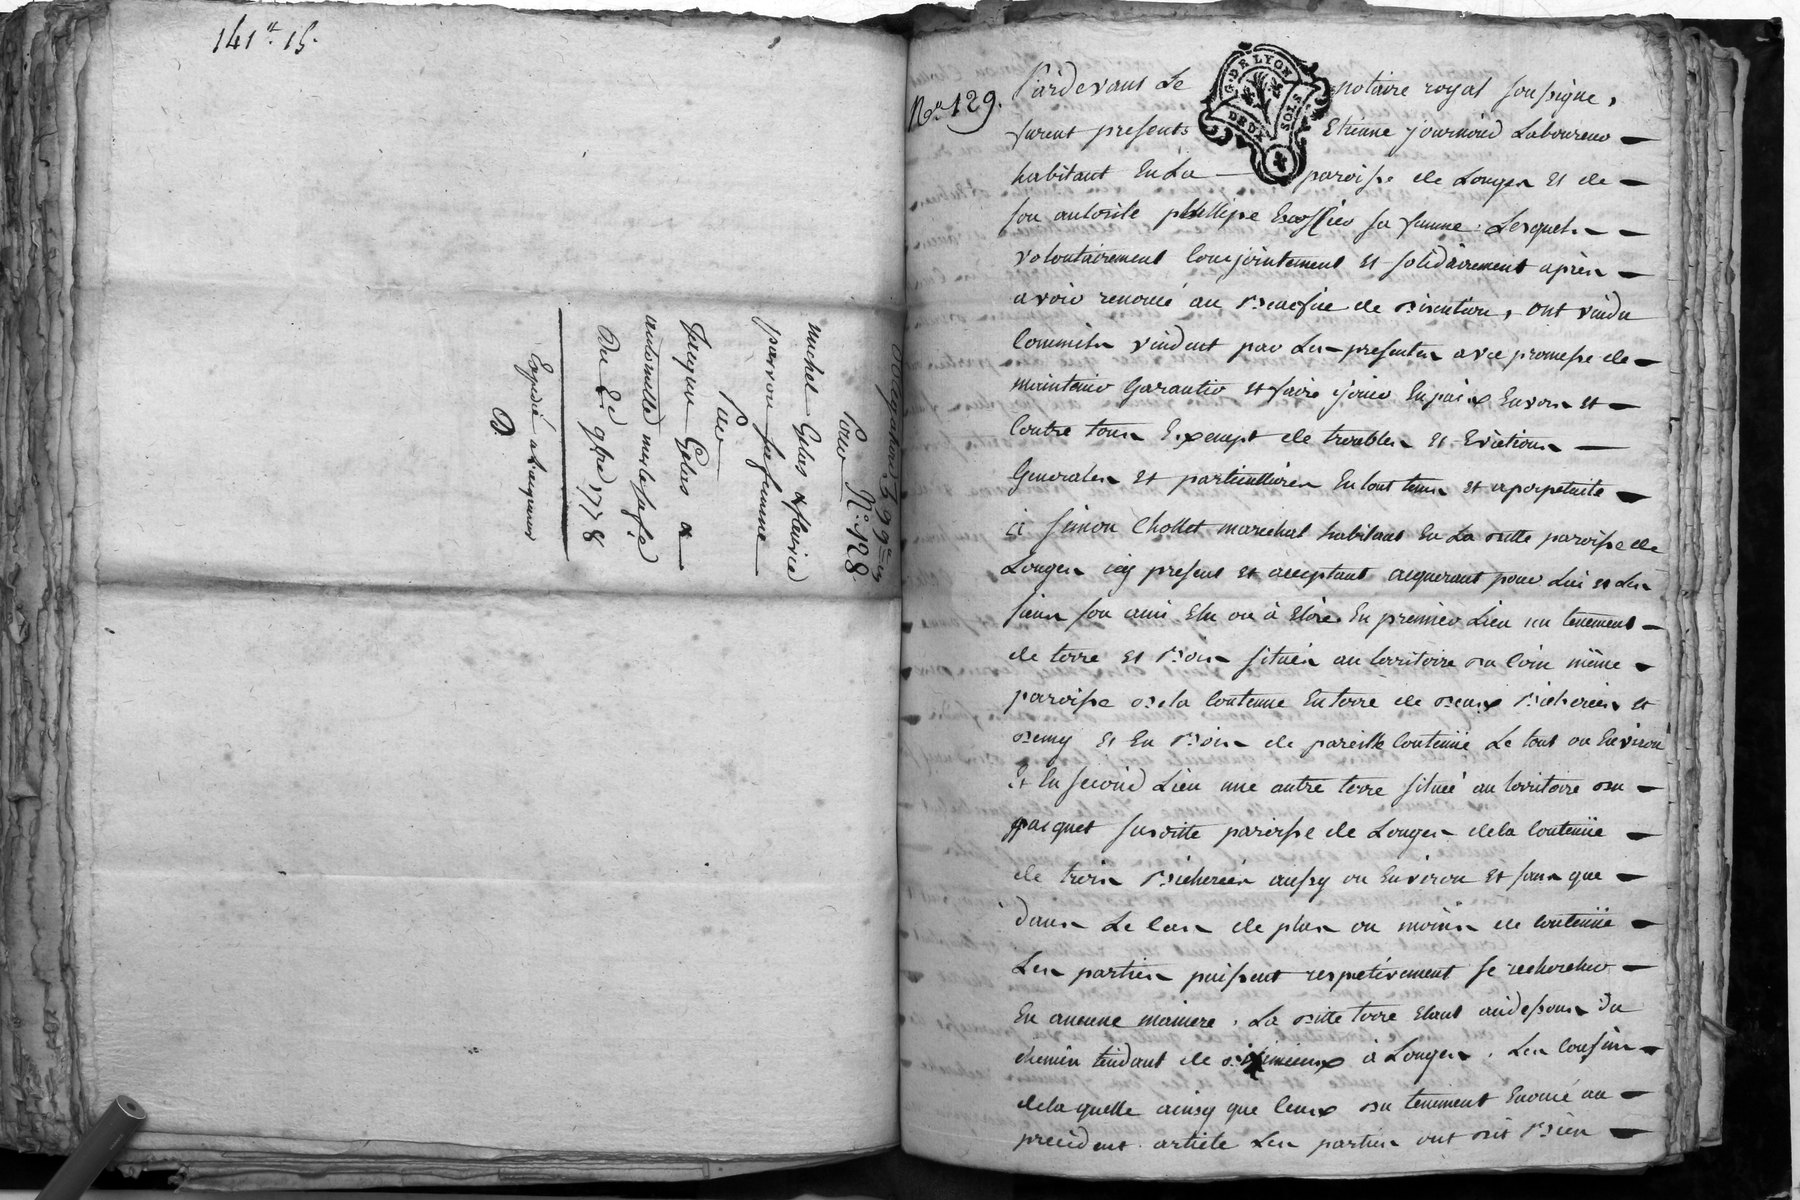 141 tt. 15.
Obligation 399 tt
Pour N.o 128
michel Gelas & fleurie
parron sa femme
Par
Jacques Gelas &
antoinette
Du 2e 9bre 1778
Expedié a l'acquereur
No. 129.
G. DE LYON
DEUX SOLS
Pardevant Le notaire royal soussigne,
furent presents Etienne journoud Laboureur
habitant En La paroisse de Longes Et de
son autorite phillipe sa femme. Lesquels
volontairement Conjointement Et solidairement après
avoir renoncé au Benefice de Division, ont vendu
Comme ils vendent par Les presentes avec promesse de
maintenir Garantir Et faire jouir En paix Envers Et
Contre tous Exempt de troubles Et Evictions
Generales Et particullieres En tout tems Et a perpetuite
à simon Chollet marechal habitant En La ditte paroisse de
Longes icy present Et acceptant acquerant pour Lui Et Les
siens son ami Elu ou à Elire En premier Lieu un tenement
de terre Et Bois situés au territoire du Coin même
paroisse De la Contenue En terre de Deux Bicherées Et
Demy Et En Bois de pareille Contenüe Le tout ou Environ
Et En second Lieu une autre terre située au territoire du
pasquet susditte paroisse de Longes de la Contenüe
de trois Bicherées aussy ou Environ Et sans que
dans Le Cas de plus ou moins de Contenüe
Les parties puissent respectivement se rechercher
En aucune maniere. La ditte terre Etant au dessous Du
chemin tendant de à Longes. Les Confins
de laquelle ainsy que Ceux du tenement Enoncé au
precedent article Les parties ont Dit Bien